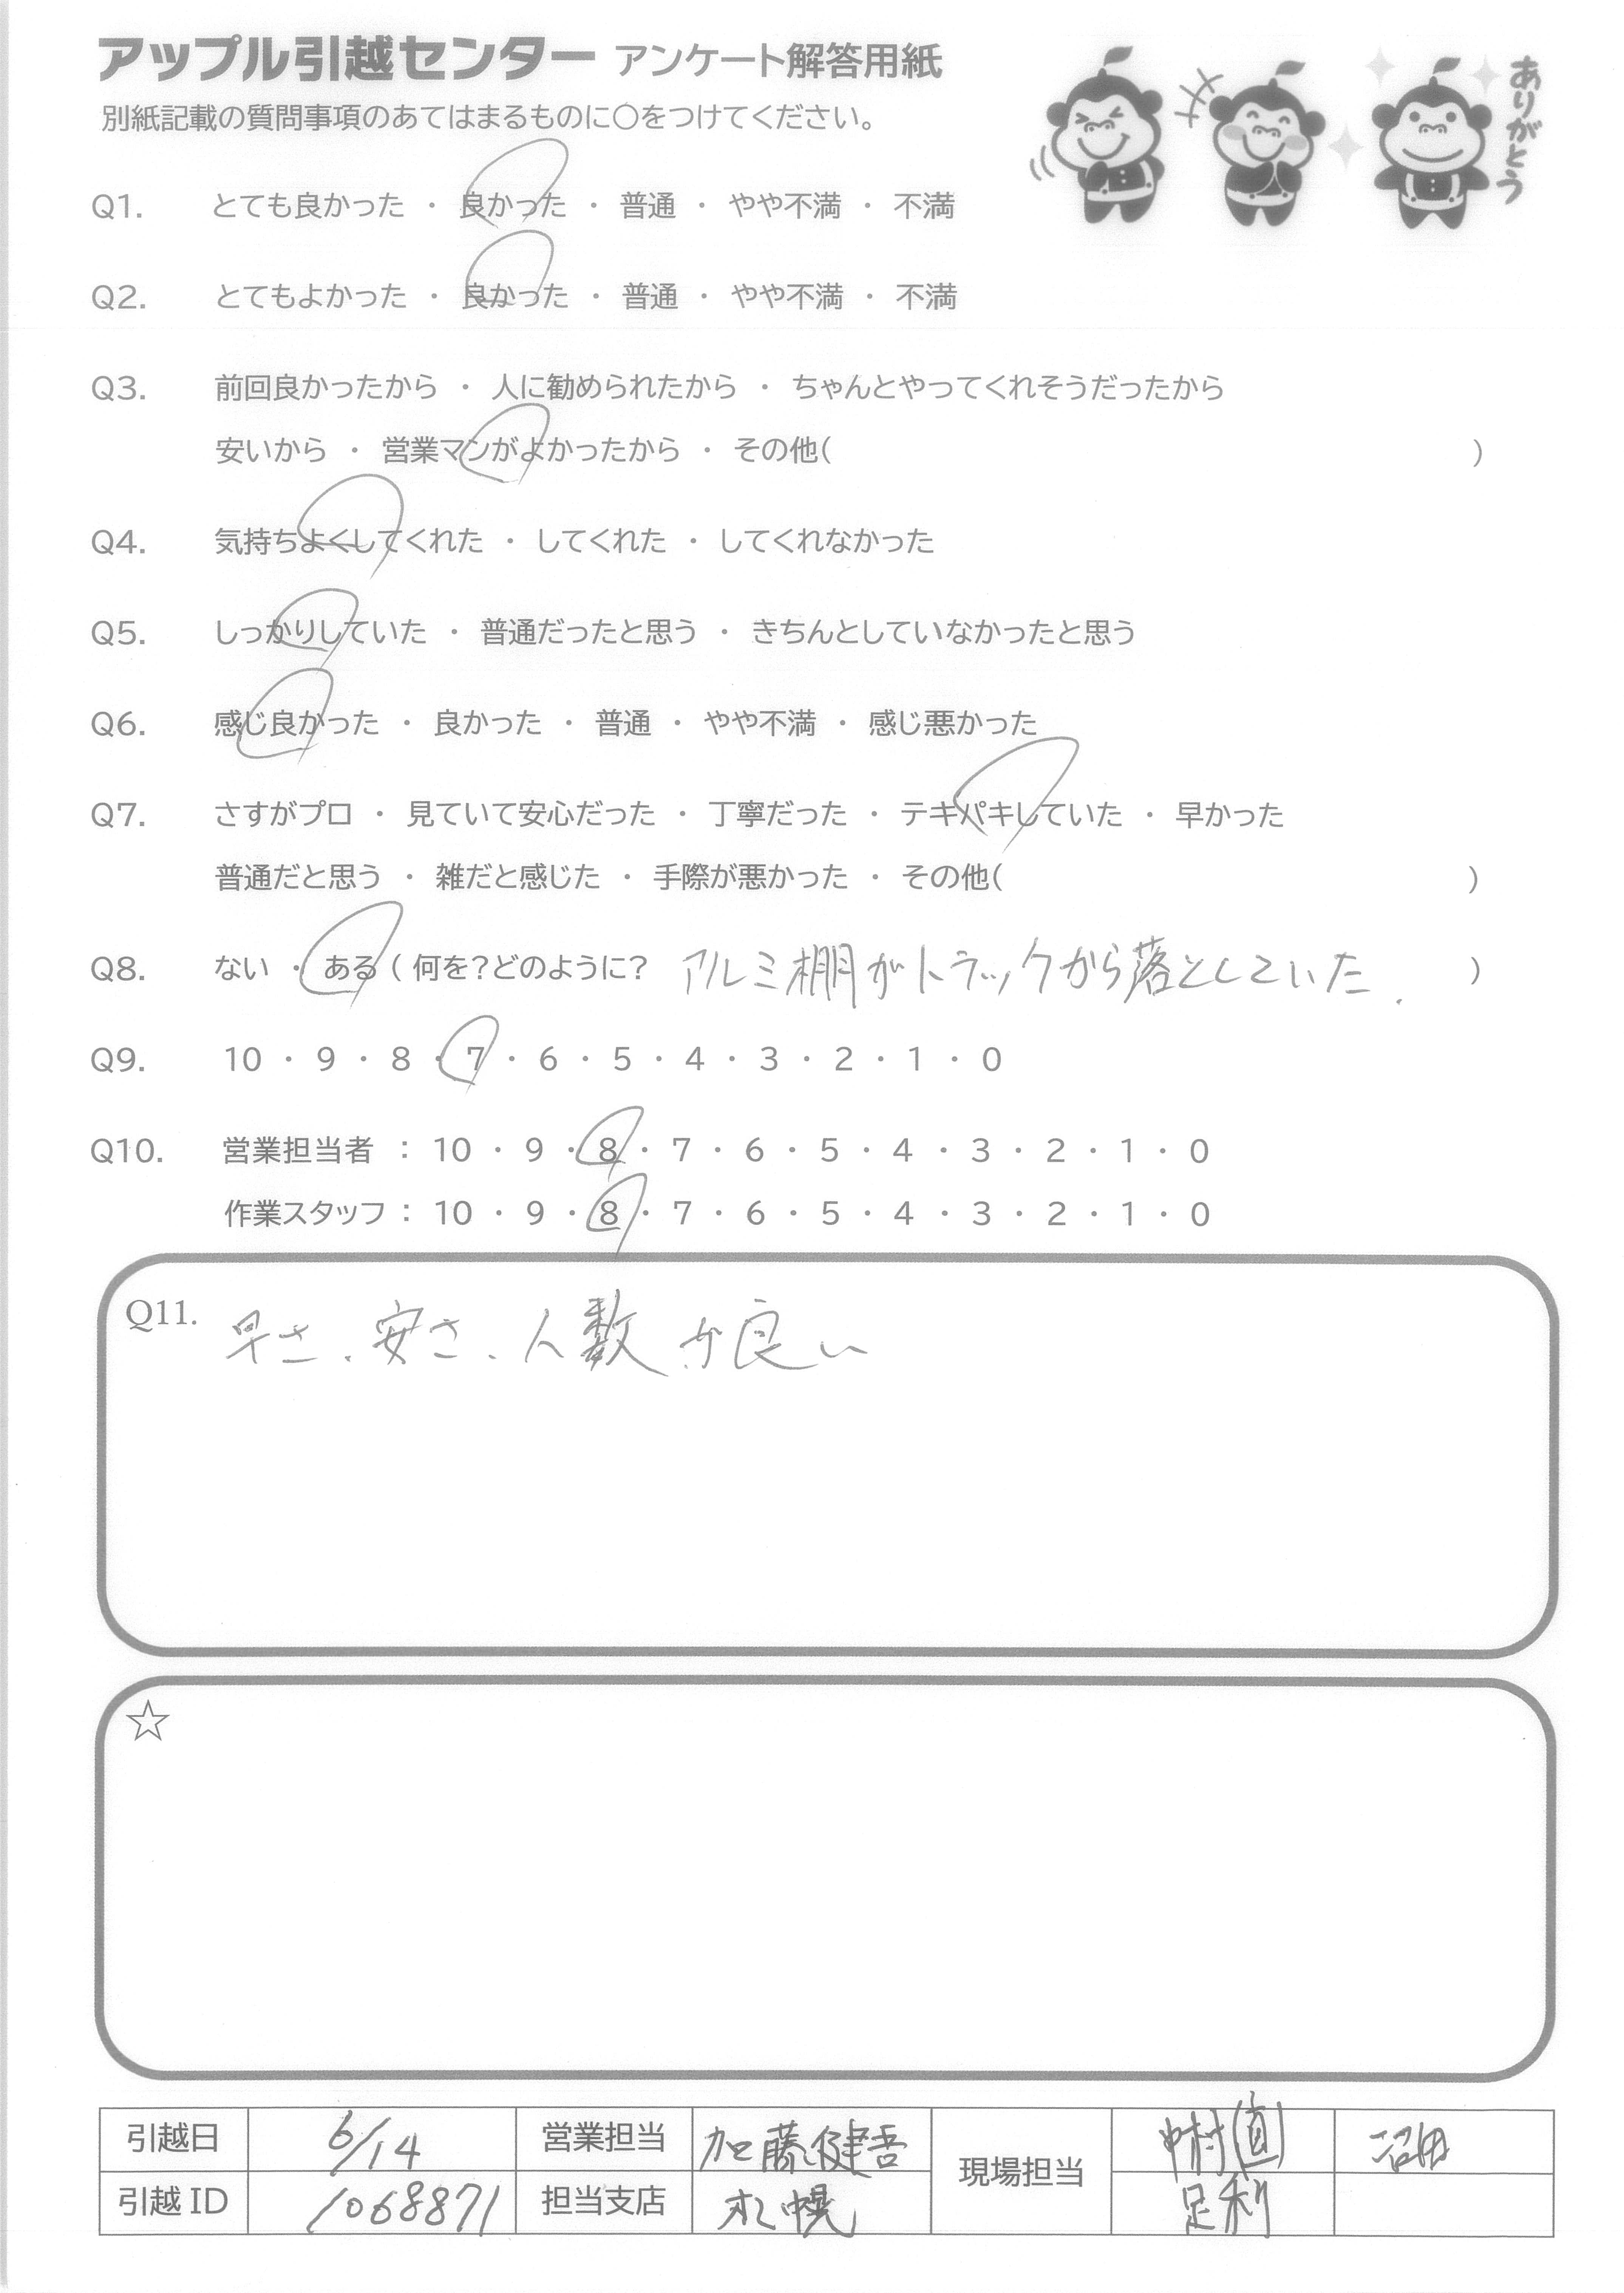 アップル引越センター アンケート解答用紙
別紙記載の質問事項のあてはまるものに〇をつけてください。
ありがとう
Q1. とても良かった ・ 良かった ・ 普通 ・ やや不満 ・ 不満
Q2. とてもよかった ・ 良かった ・ 普通 ・ やや不満 ・ 不満
Q3. 前回良かったから ・ 人に勧められたから ・ ちゃんとやってくれそうだったから
安いから ・ 営業マンがよかったから ・ その他( )
Q4. 気持ちよくしてくれた ・ してくれた ・ してくれなかった
Q5. しっかりしていた ・ 普通だったと思う ・ きちんとしていなかったと思う
Q6. 感じ良かった ・ 良かった ・ 普通 ・ やや不満 ・ 感じ悪かった
Q7. さすがプロ ・ 見ていて安心だった ・ 丁寧だった ・ テキパキしていた ・ 早かった
普通だと思う ・ 雑だと感じた ・ 手際が悪かった ・ その他( )
Q8. ない ・ ある ( 何を?どのように? アルミ棚がトラックから落としていた. )
Q9. 10 ・ 9 ・ 8 ・ 7 ・ 6 ・ 5 ・ 4 ・ 3 ・ 2 ・ 1 ・ 0
Q10. 営業担当者 : 10 ・ 9 ・ 8 ・ 7 ・ 6 ・ 5 ・ 4 ・ 3 ・ 2 ・ 1 ・ 0
作業スタッフ : 10 ・ 9 ・ 8 ・ 7 ・ 6 ・ 5 ・ 4 ・ 3 ・ 2 ・ 1 ・ 0
Q11. 早さ、安さ、人数が良い
☆
引越日 6/14 営業担当 加藤健吾 現場担当 中村(直) 沼田
引越ID 1068871 担当支店 札幌 足利